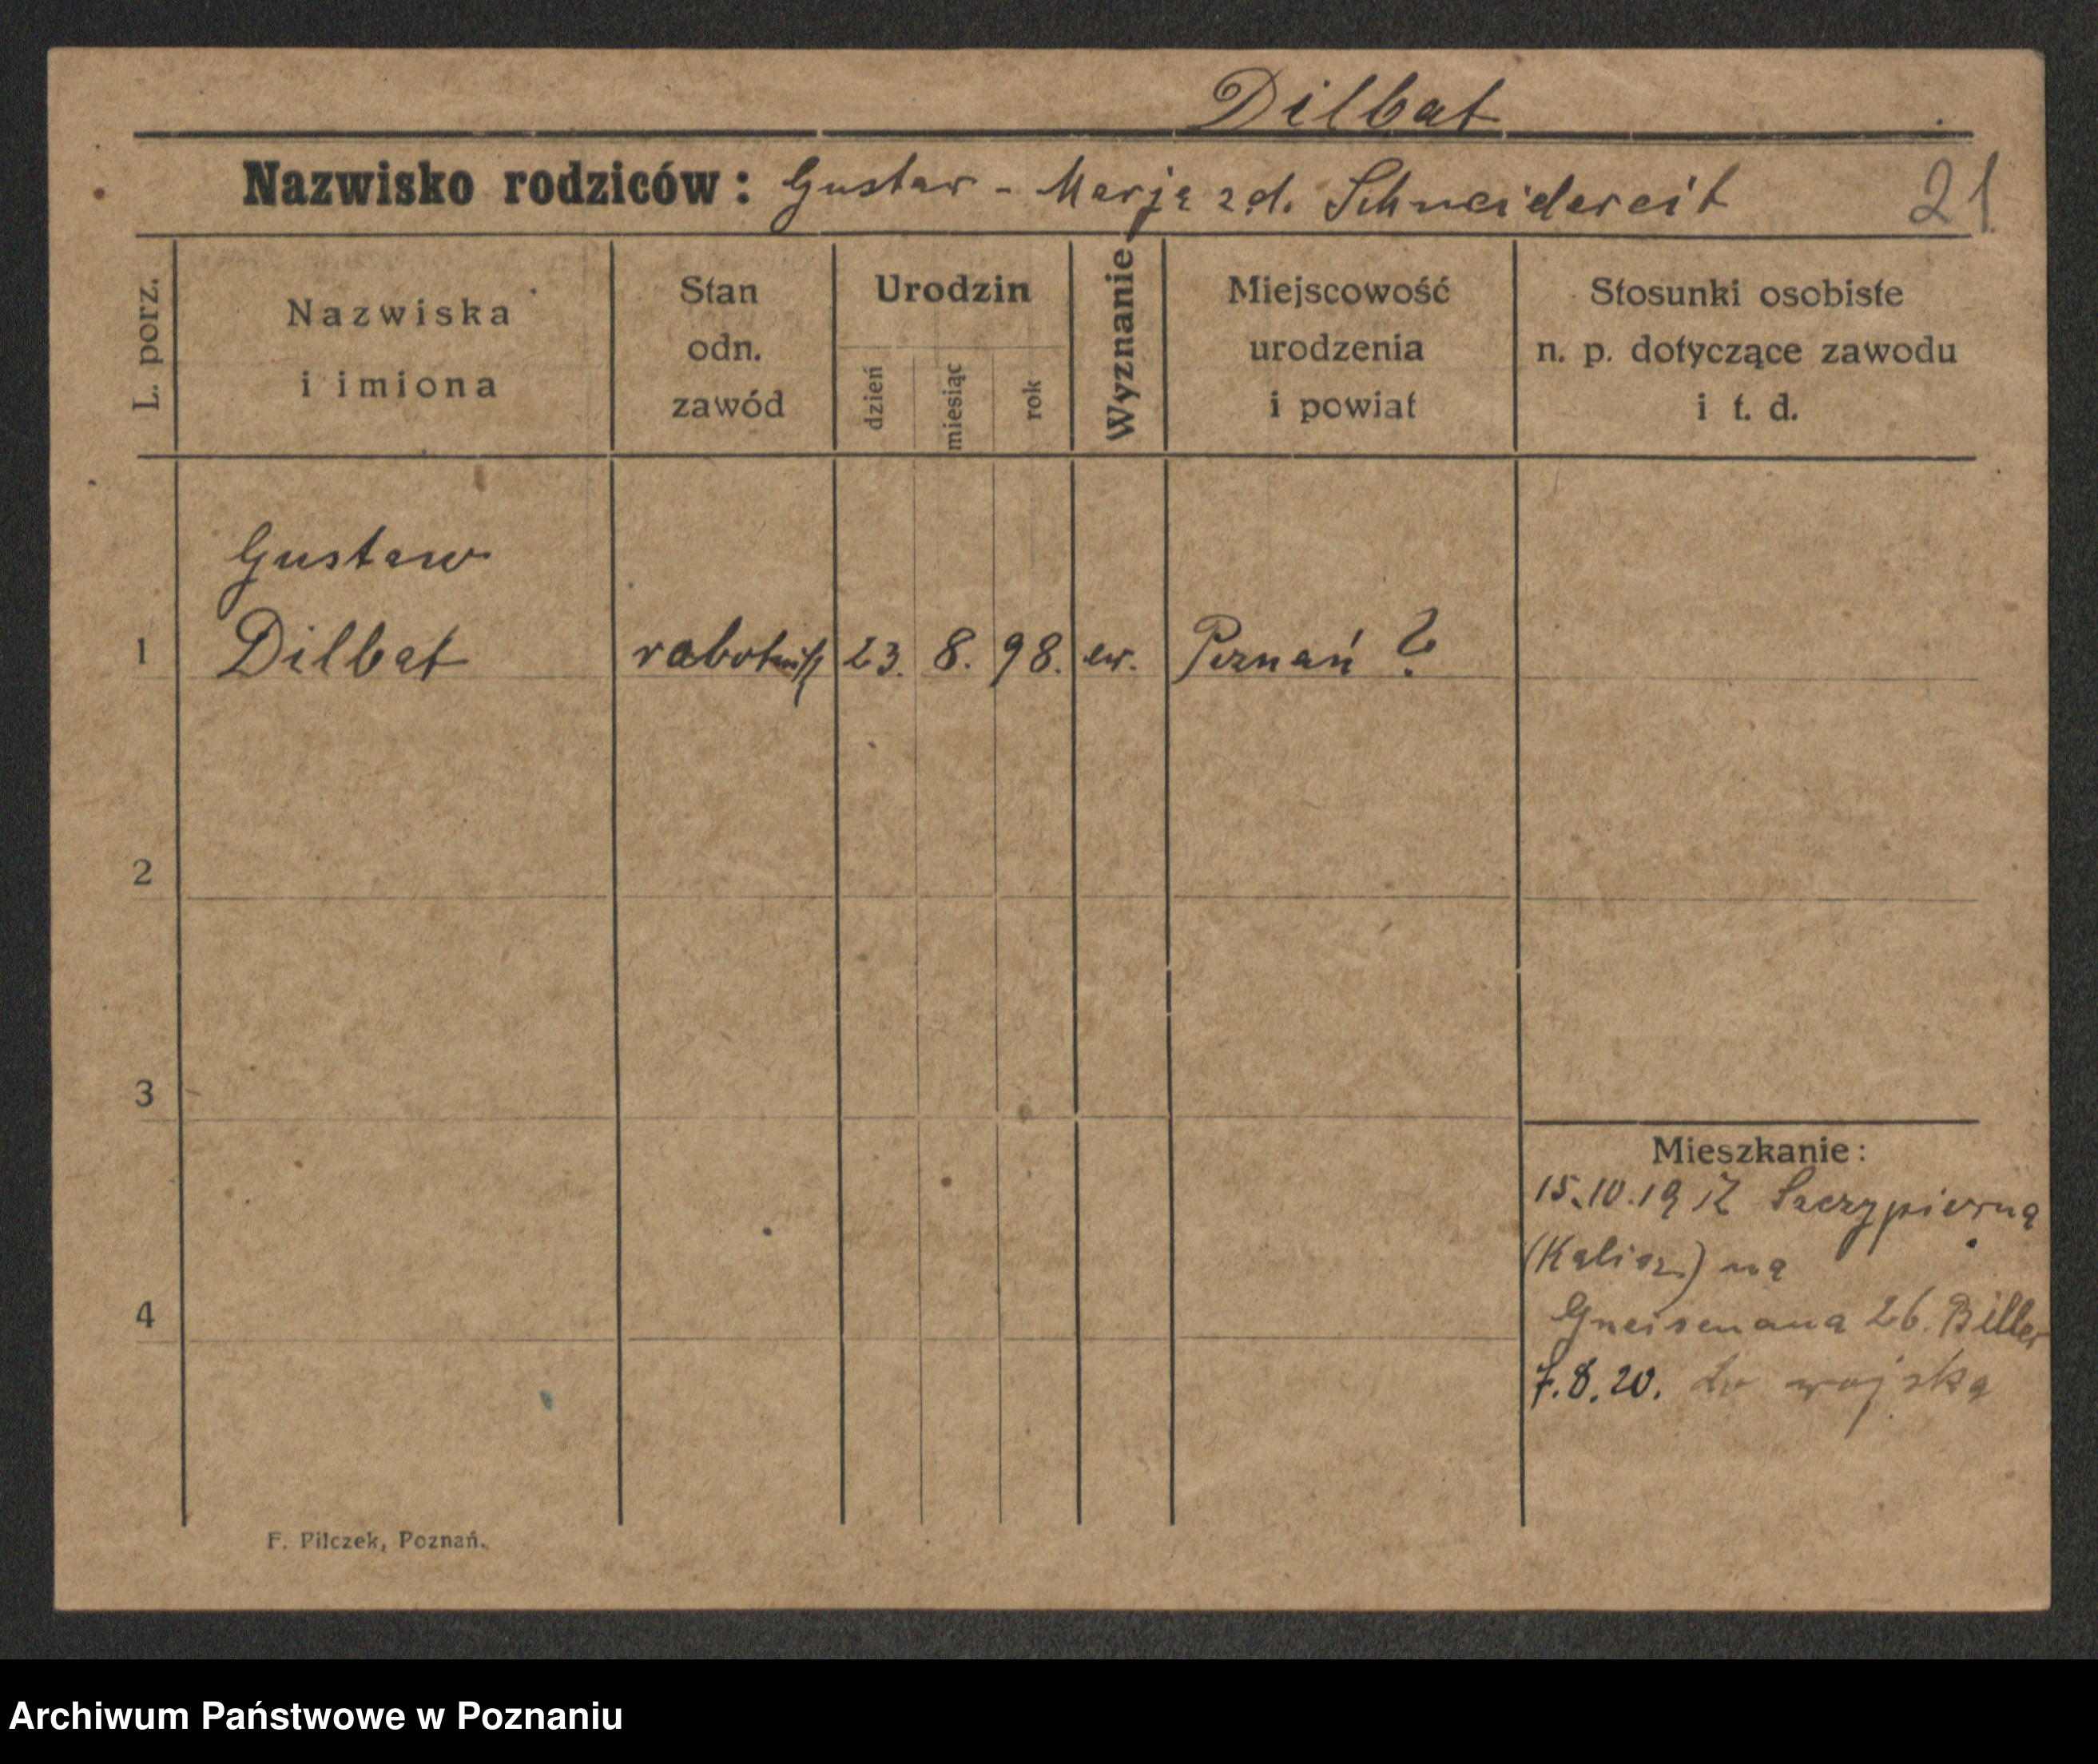 Dilbat
Nazwisko rodziców: Gustaw - Marja zd. Schneidereit 21
L. porz.
Nazwiska
i imiona
Stan
odn.
zawód
Urodzin
dzień
miesiąc
rok
Wyznanie
Miejscowość
urodzenia
i powiat
Stosunki osobiste
n. p. dotyczące zawodu
i t. d.
Gustaw
1 Dilbat robotnik 23. 8. 98. ew. Poznań ?
2
3
4
Mieszkanie:
15.10.19 Szczypiorna
(Kalisz) na
Gneisenaua 26. Biller
7.8.20. do wojska
F. Pilczek, Poznań.
Archiwum Państwowe w Poznaniu